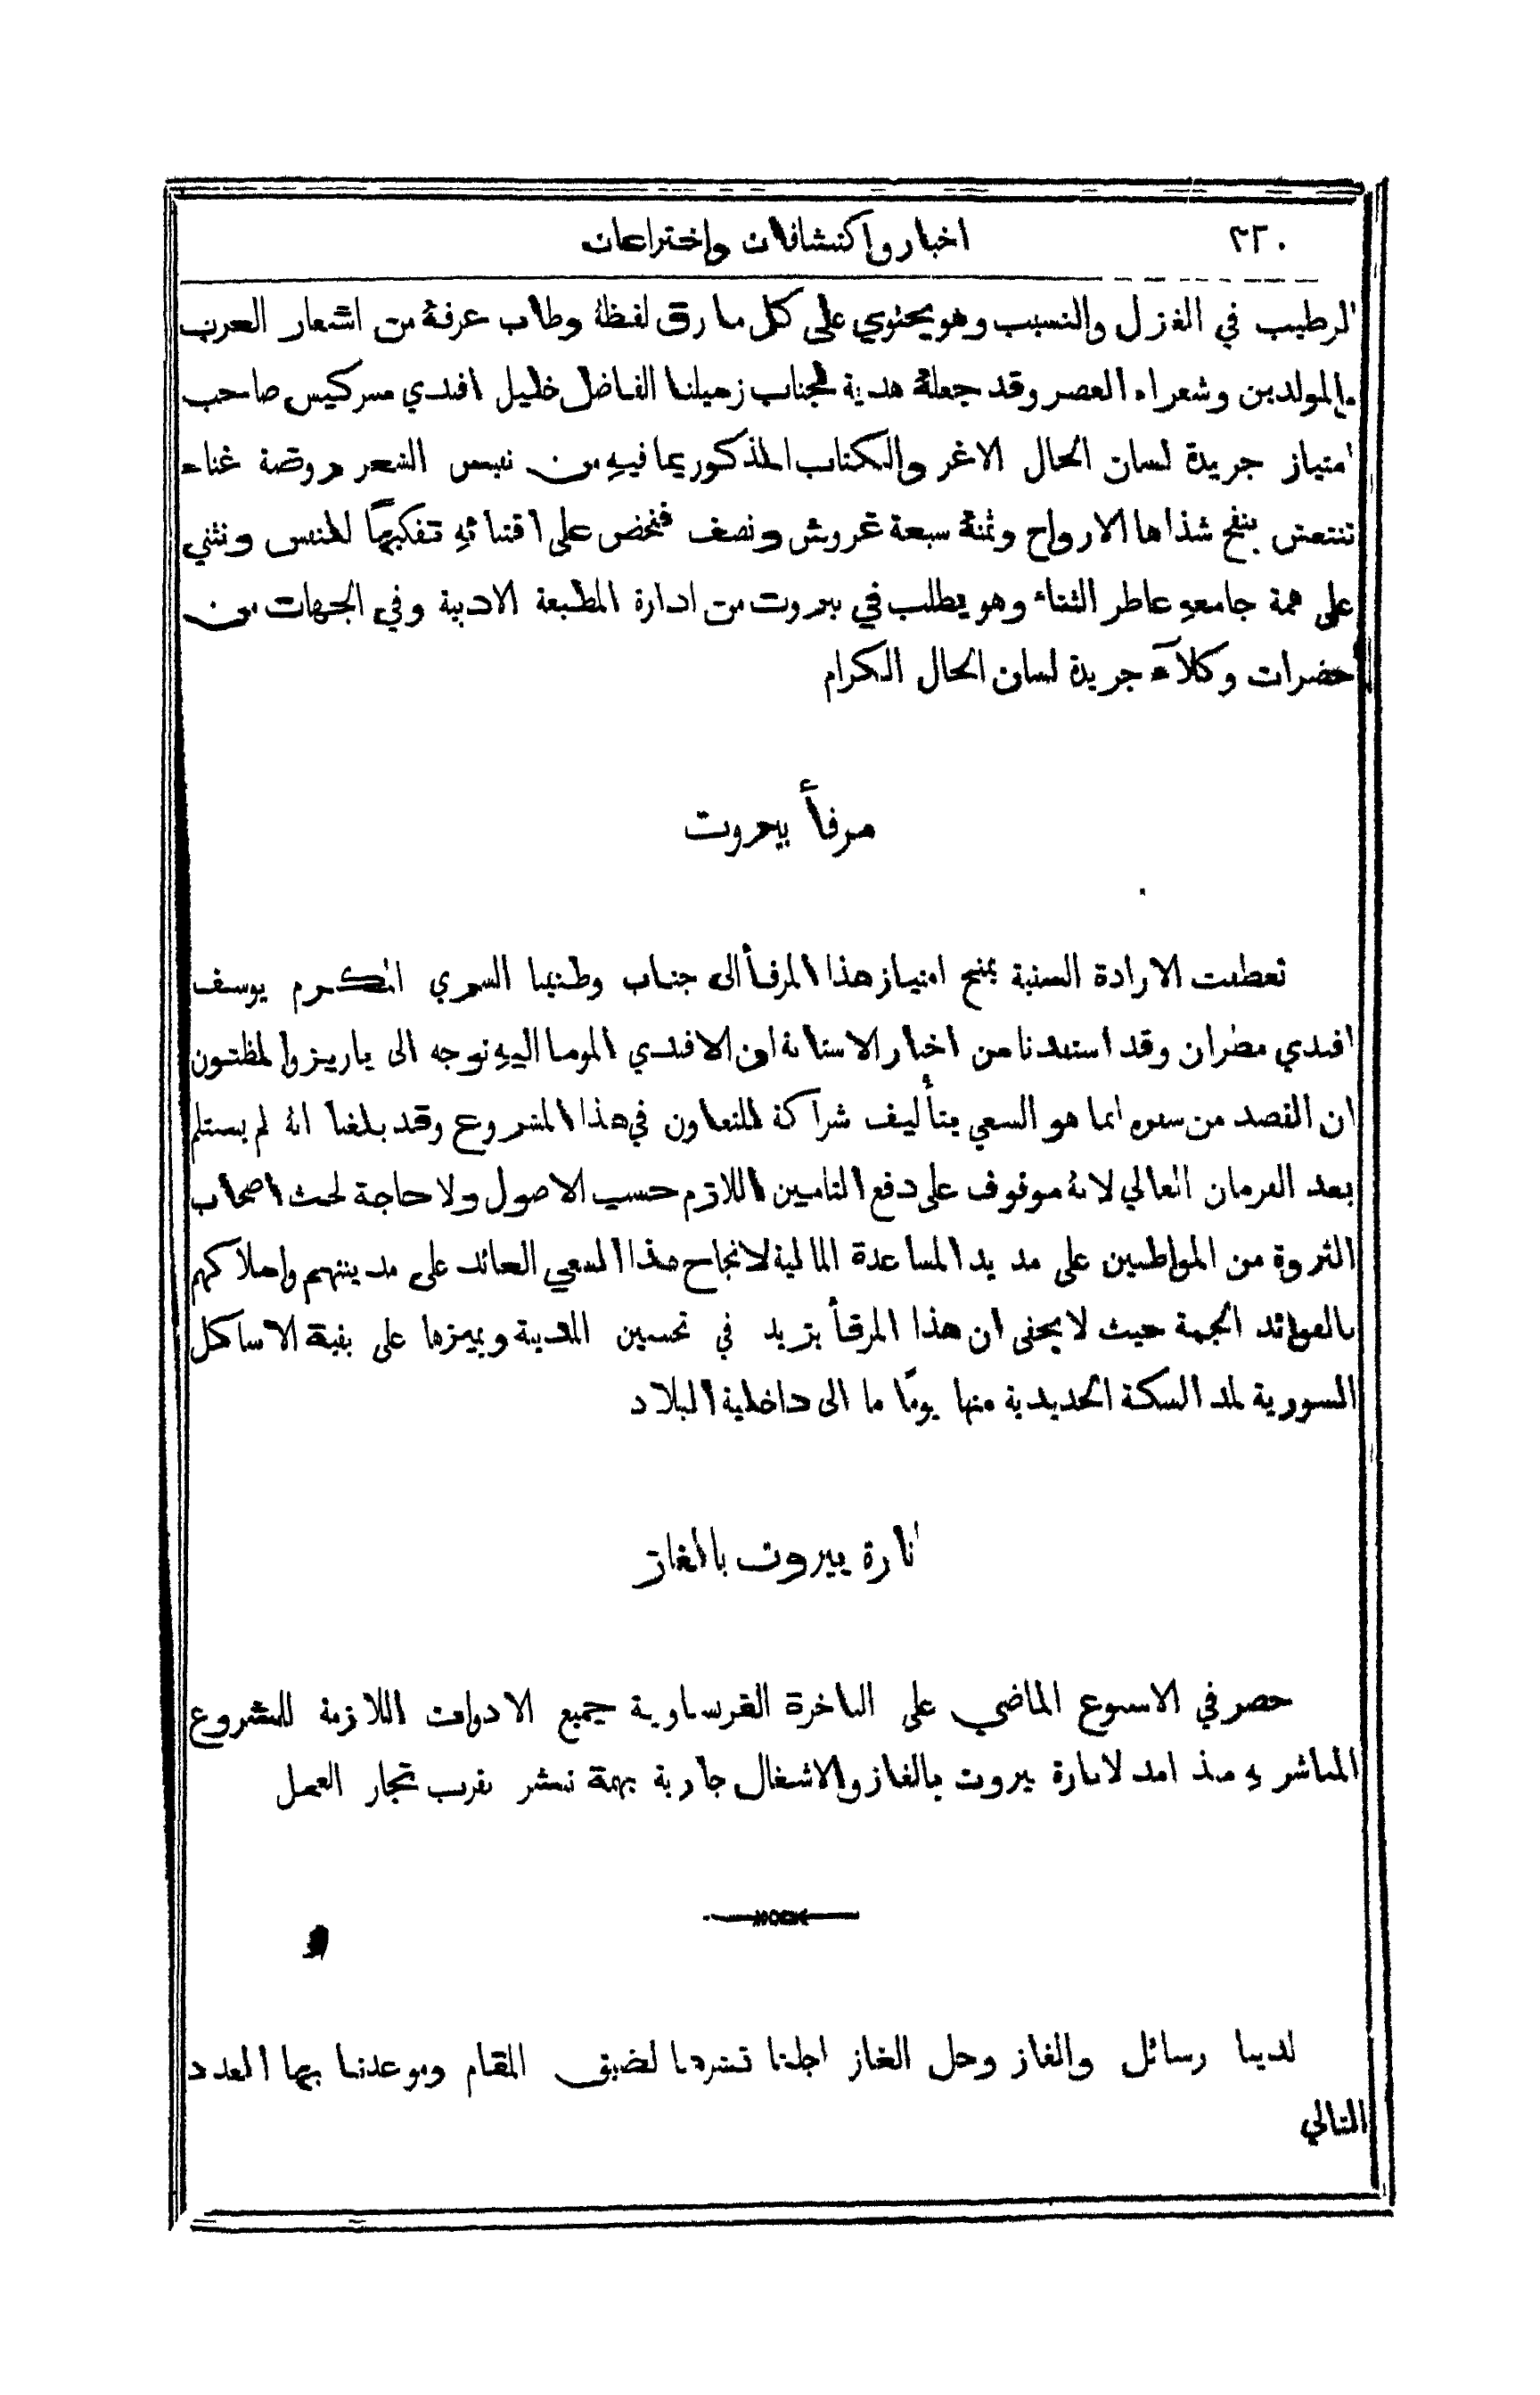 ٣٢٠
اخبار واكتشافات واختراعات
الرطيب في الغزل والنسيب وهو يحتوي على كل ما رق لفظهُ وطاب عرفهُ من اشعار العرب
والمولدين وشعراء العصر وقد جعلهُ هدية لجناب زميلنا الفاضل خليل افندي سركيس صاحب
امتياز جريدة لسان الحال الاغر والكتاب المذكور بما فيهِ من نفيس الشعر روضة غناء
تنتعش بنفح شذاها الارواح وثمنهُ سبعة غروش ونصف فنحض على اقتنائهِ تفكيهًا للنفس ونثني
على همة جامعهِ عاطر الثناء وهو يطلب في بيروت من ادارة المطبعة الادبية وفي الجهات من
حضرات وكلاَء جريدة لسان الحال الكرام
مرفأ بيروت
تعطفت الارادة السنية بمنح امتياز هذا المرفأ الى جناب وطنينا السري المكرم يوسف
افندي مطران وقد استفدنا من اخبار الاستانة ان الافندي الموما اليهِ توجه الى باريز والمظنون
ان القصد من سفره انما هو السعي بتأليف شراكة للتعاون في هذا المشروع وقد بلغنا انهُ لم يستلم
بعد الفرمان العالي لانهُ موقوف على دفع التامين اللازم حسب الاصول ولا حاجة لحث اصحاب
الثروة من المواطنين على مد يد المساعدة المالية لانجاح هذا السعي العائد على مدينتهم واملاكهم
بالفوائد الجمة حيث لا يخفى ان هذا المرفأ يزيد في تحسين المدينة ويميزها على بقية الاساكل
السورية لمد السكة الحديدية منها يومًا ما الى داخلية البلاد
انارة بيروت بالغاز
حضر في الاسبوع الماضي على الباخرة الفرنساوية جميع الادوات اللازمة للمشروع
المباشر بهِ منذ امد لانارة بيروت بالغاز والاشغال جارية بهمة تبشر بقرب نجاز العمل
لدينا رسائل والغاز وحل الغاز اجلنا نشرها لضيق المقام وموعدنا بها العدد
التالي